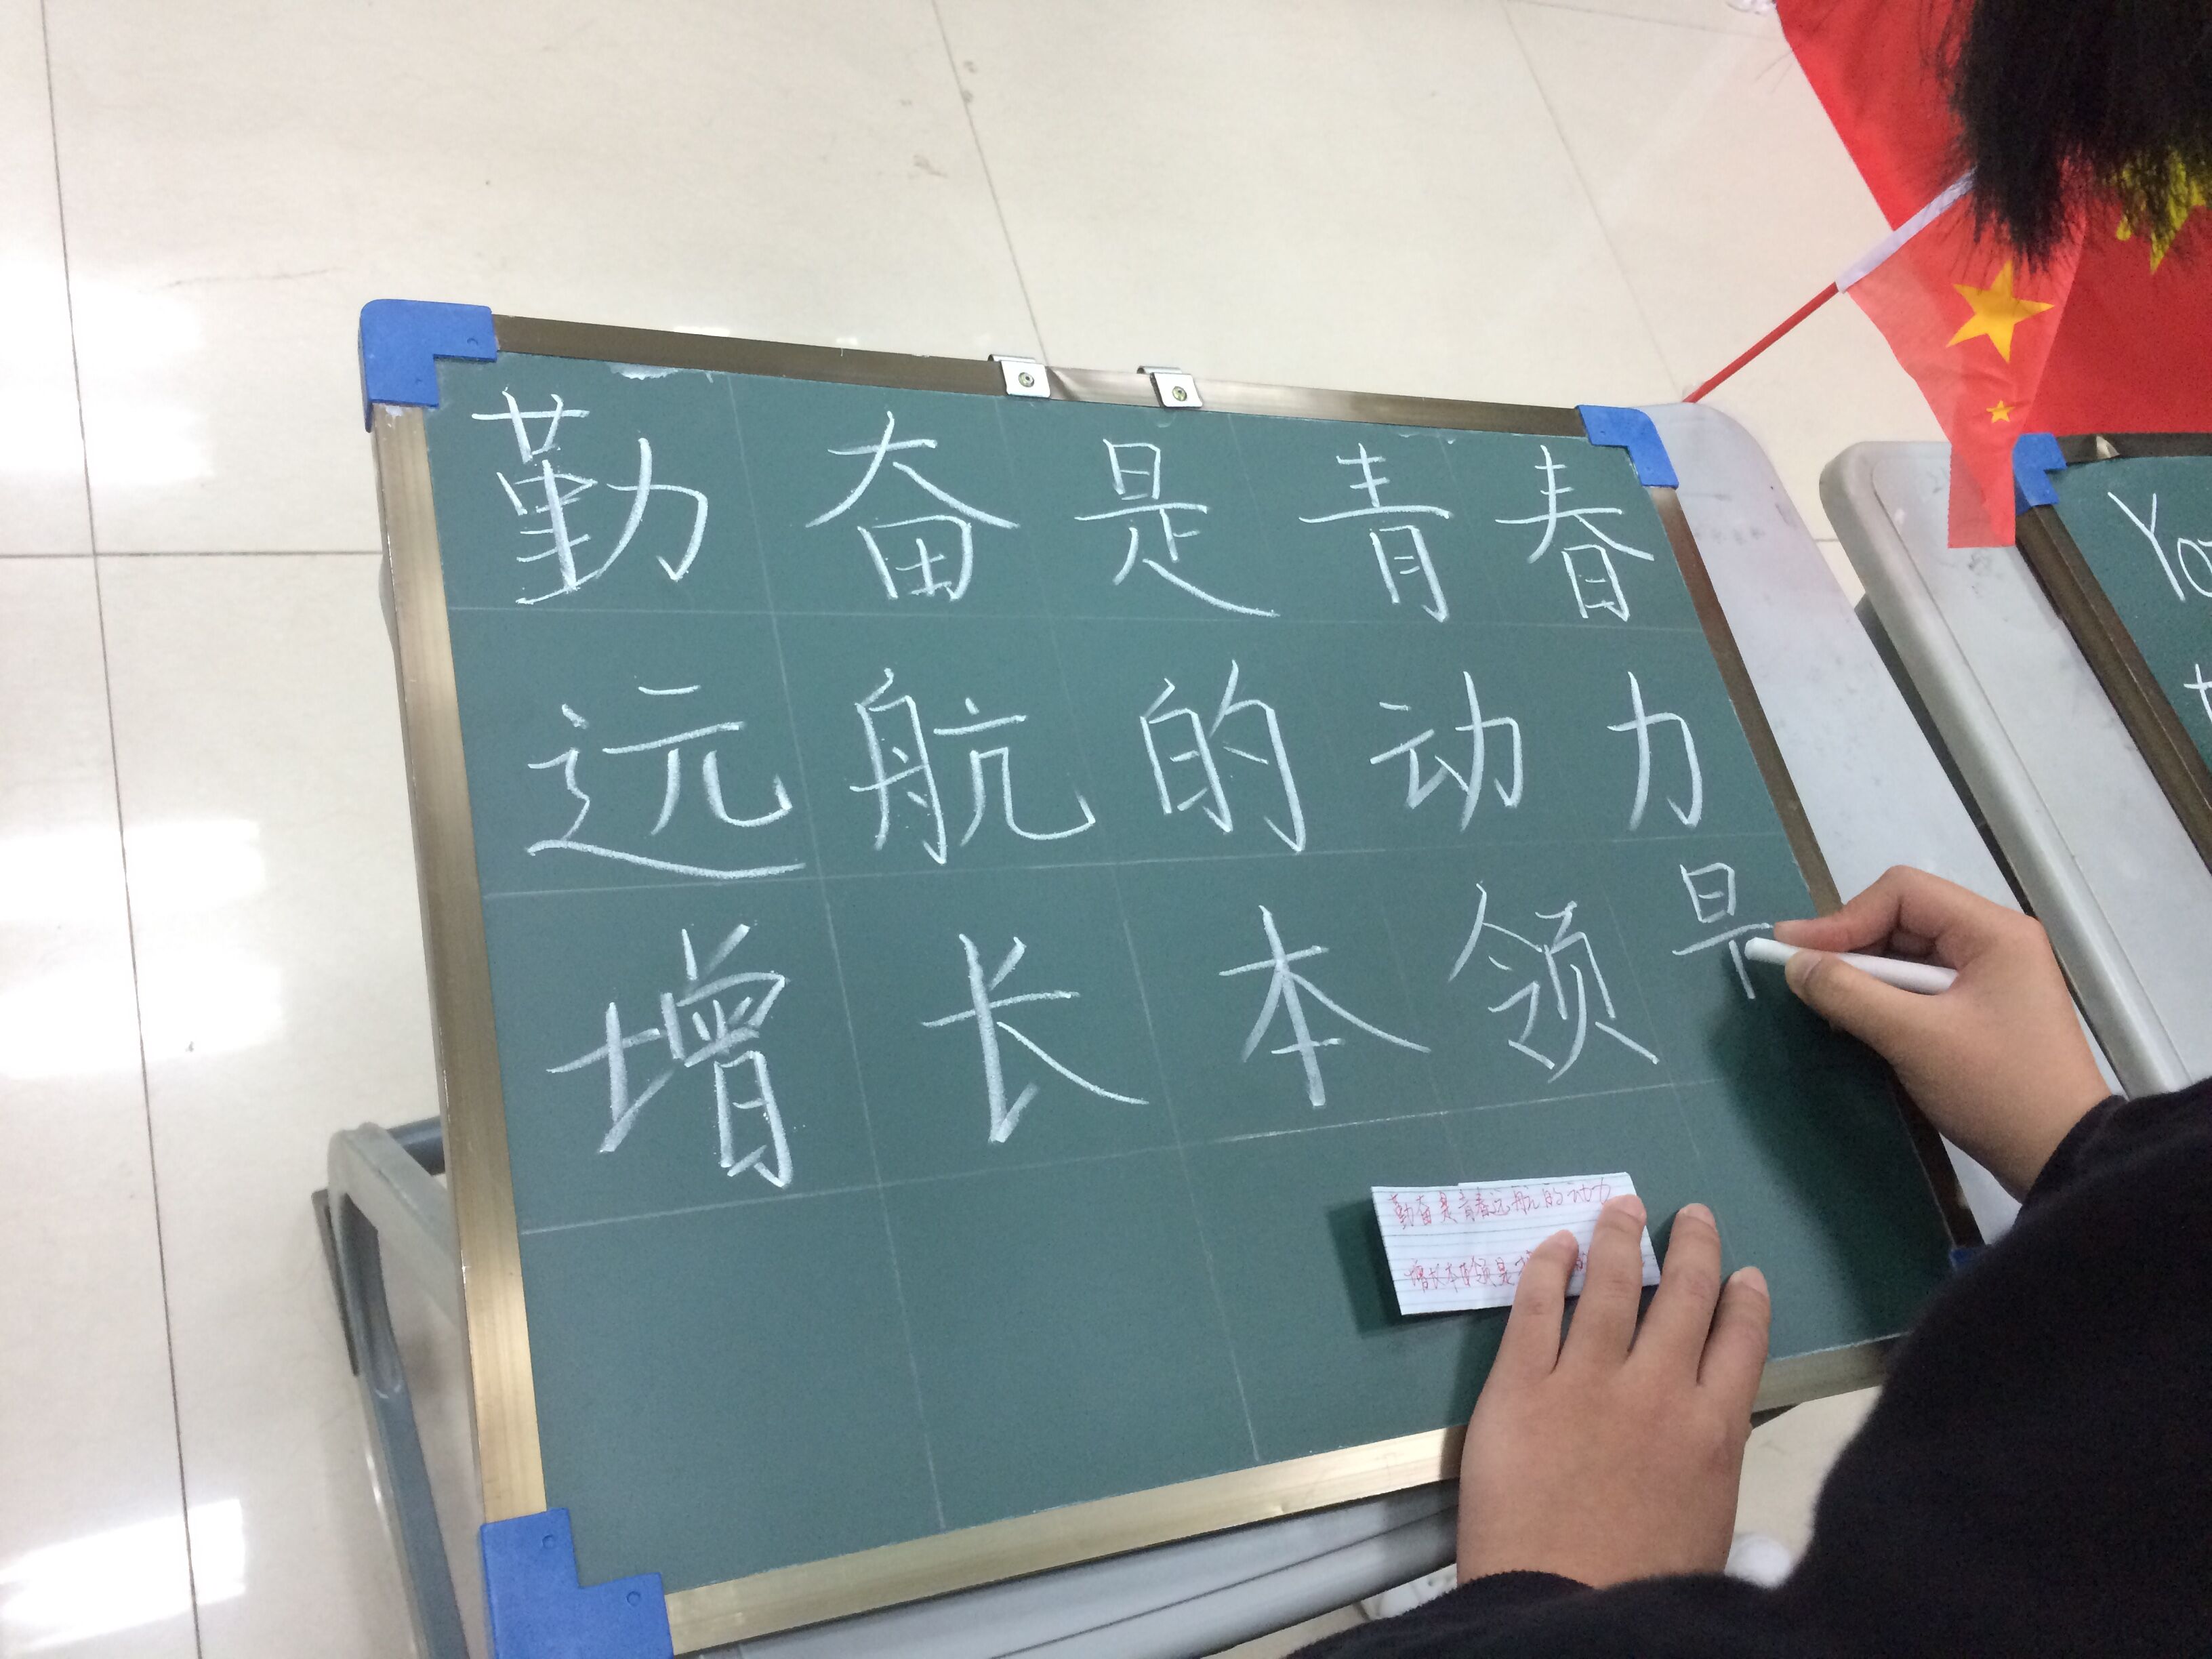 勤奋是青春
远航的动力
增长本领是
勤奋是青春远航的动力
增长本领是